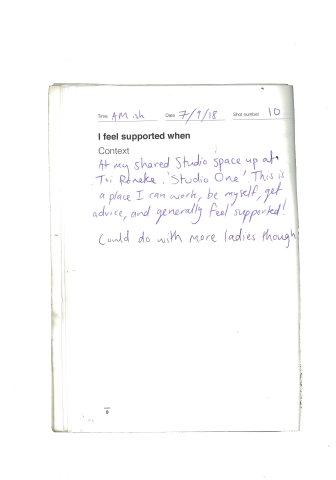 Time AM.ish Date 7/9/18 Shot number 10
I feel supported when
Context
At my shared Studio space up at
Toi Poneke. 'Studio One' This is
a place I can work, be myself, get
advice, and generally feel supported!
Could do with more ladies though
8